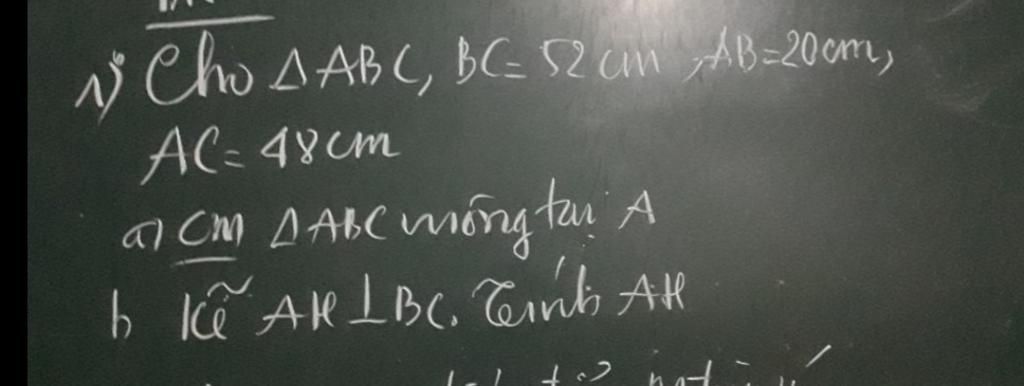 1) Cho △ABC, BC = 52 cm, AB = 20 cm,
AC = 48 cm
a) CM △ABC vuông tại A
b Kẽ AH ⊥ BC. Tính AH